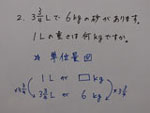 2. 3¾Lで6kgの砂があります。
1Lの重さは何kgですか。
単位量図
1Lが □kg
×3¾ 3¾Lが 6kg ×3¾